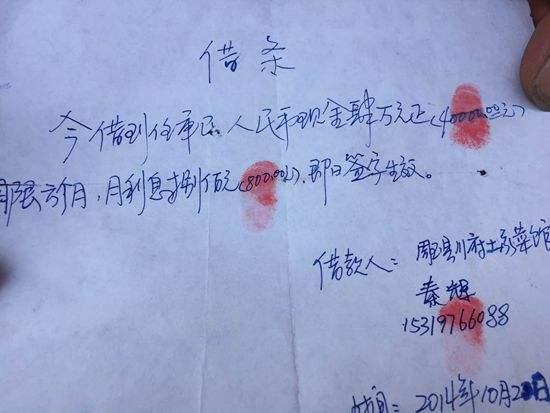 借条
今借到任军民人民币现金肆万元正(40000.00元)
期限六个月,月利息捌佰元(800.00元),即日签字生效。
借款人:周县川府土家菜馆
秦旭
15319766088
时间:2014年10月20日